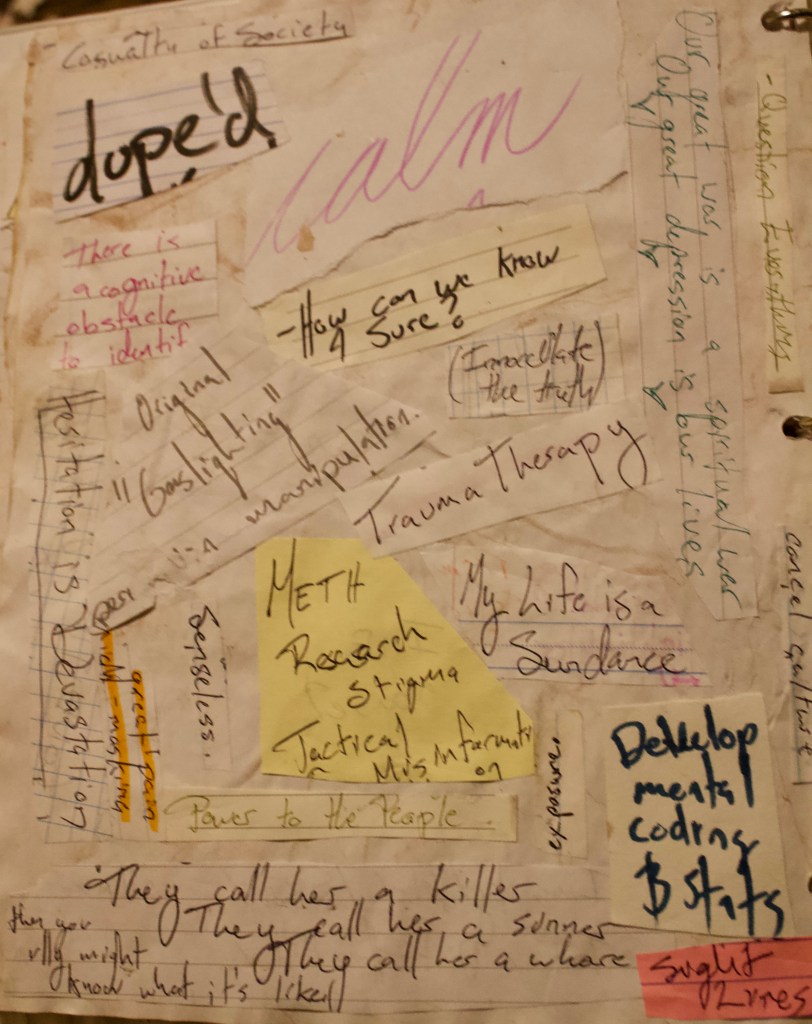 Casualty of Society
doped
calm
Our great war, is a spiritual war
Our great depression is our lives
- Question Everything
There is
a cognitive
obstacle
to identif
- How can we know
4 sure?
(Immediate
the truth)
Original
"Gaslighting"
manipulation.
Trauma Therapy
Hesitation is Devastation
Senseless.
METH
Research
Stigma
Tactical
Misinformation
My Life is a
Sundance
cancel culture
great pain
exposure.
Power to the People
Develop
mental
coding
B Stats
They call her a killer
They call her a sinner
They call her a whore
then you
rlly might
know what it's like